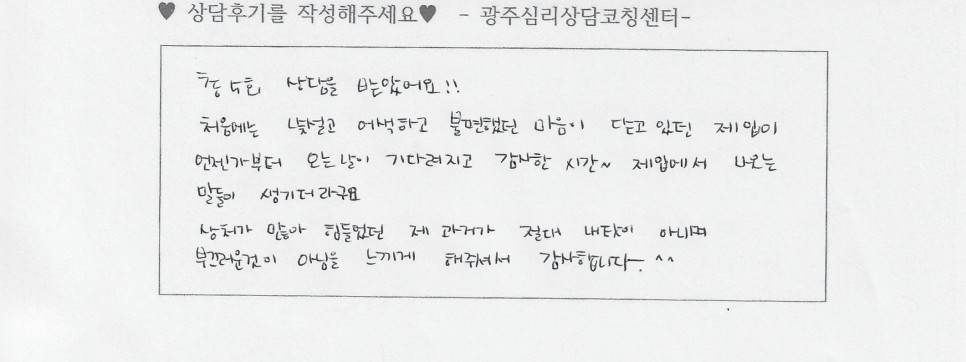 ♥ 상담후기를 작성해주세요♥ - 광주심리상담코칭센터-
총 5회 상담을 받았어요!!
처음에는 낯설고 어색하고 불편했던 마음이 닫고 있던 제입이
언젠가부터 오는날이 기다려지고 감사한 시간~ 제입에서 나오는
말들이 생기더라구요
상처가 많아 힘들었던 제 과거가 절대 내탓이 아니며
부끄러운것이 아님을 느끼게 해주셔서 감사합니다. ^^